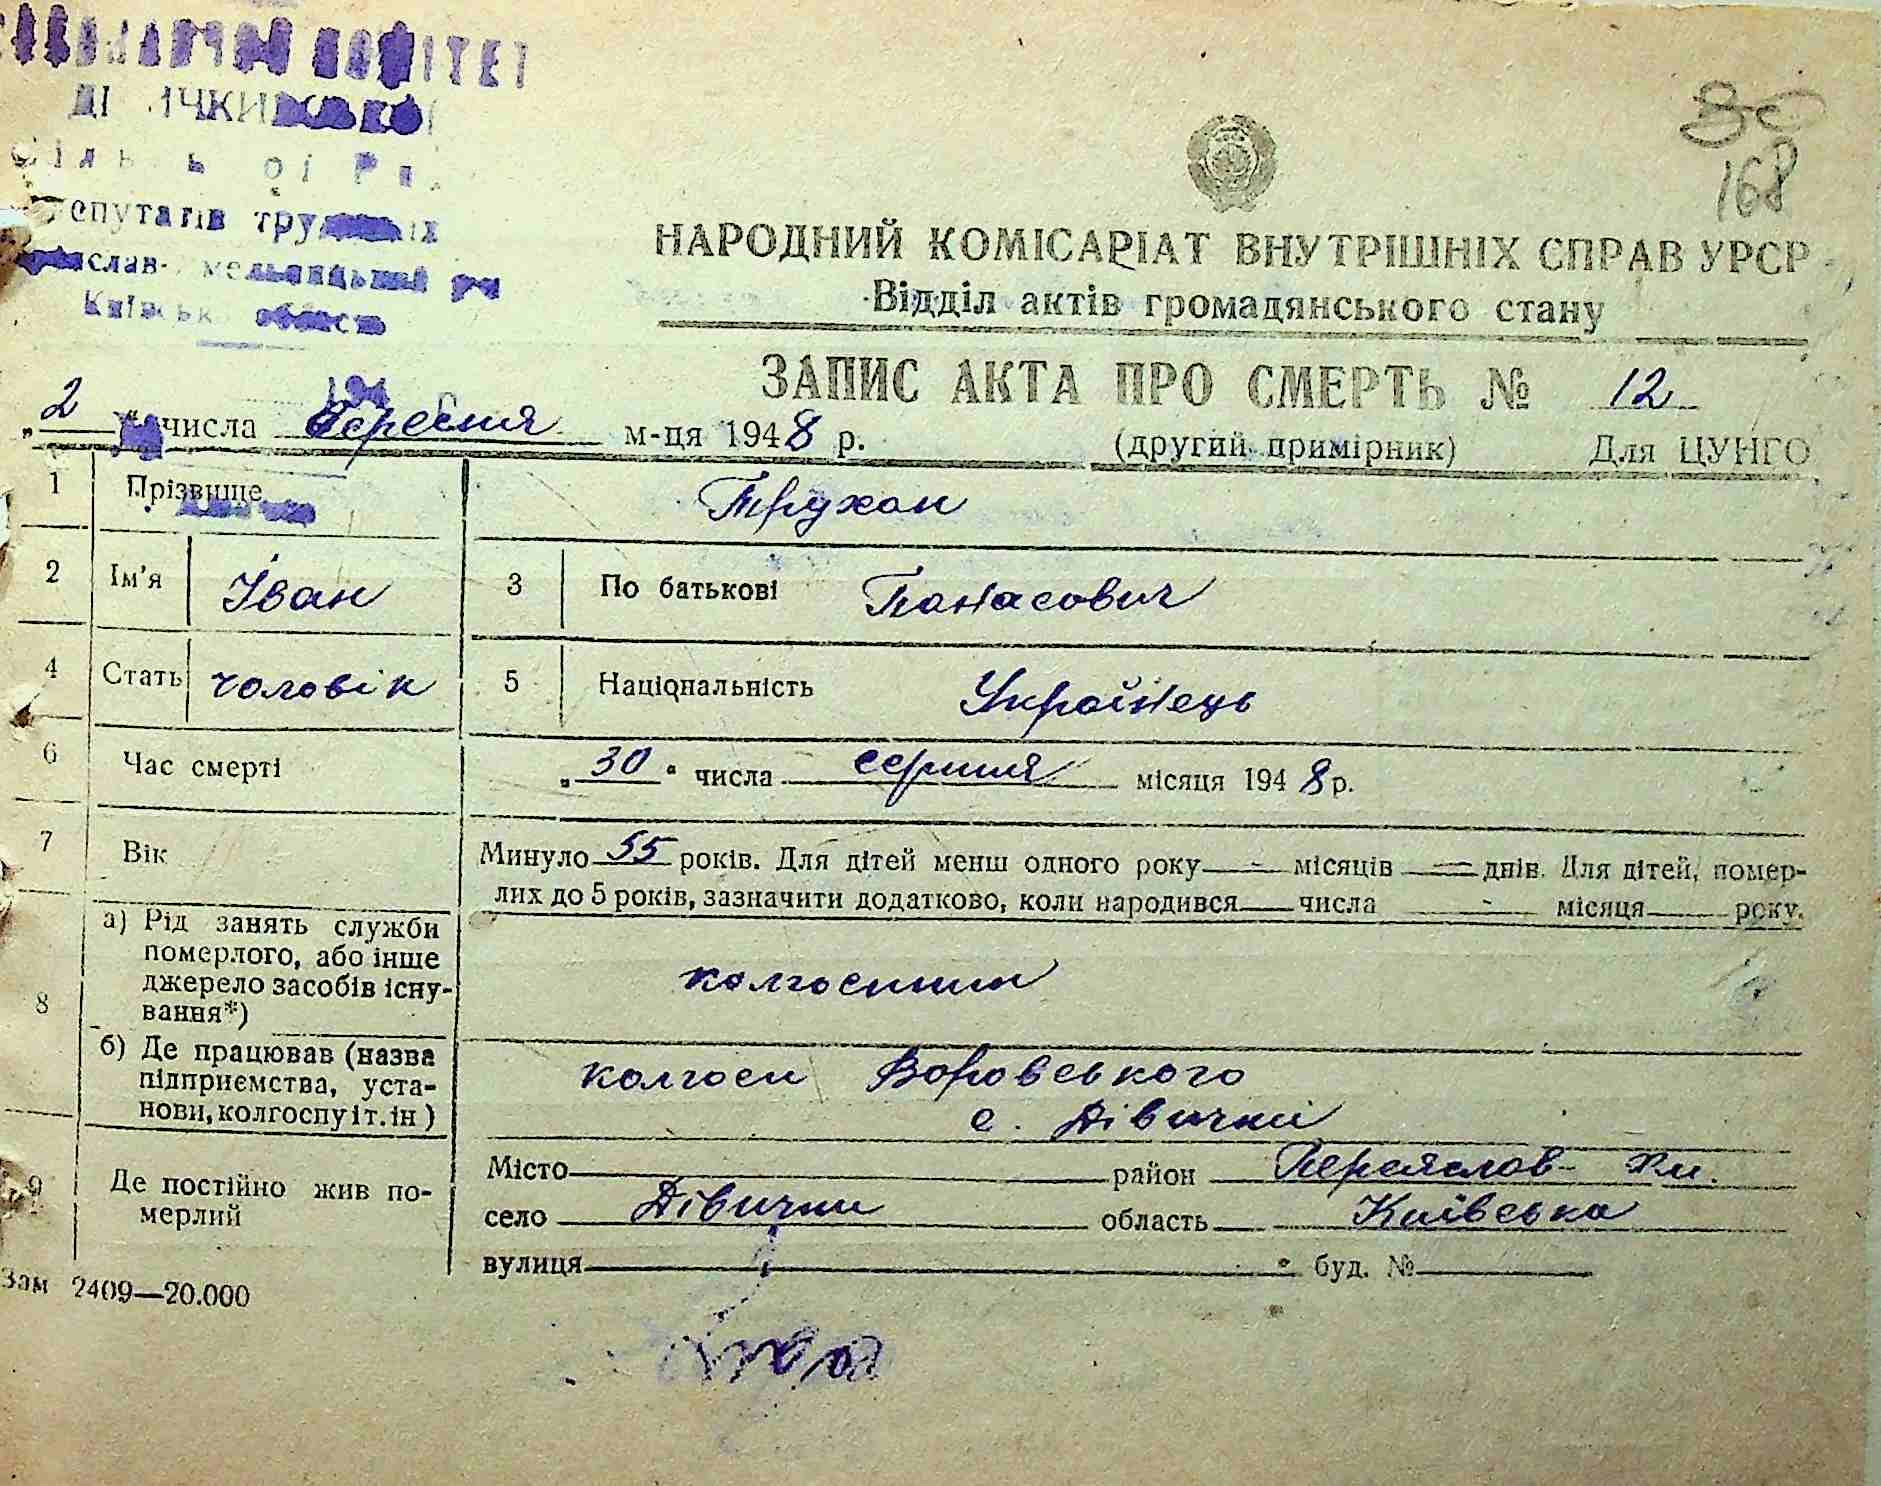 КОМІТЕТ
депутатів трудящих
область
80
168
НАРОДНИЙ КОМІСАРІАТ ВНУТРІШНІХ СПРАВ УРСР
Відділ актів громадянського стану
ЗАПИС АКТА ПРО СМЕРТЬ № 12
„2“ числа Вересня м-ця 1948 р. (другий примірник) Для ЦУНГО
1 Прізвище Трухан
2 Ім'я Іван 3 По батькові Панасович
4 Стать чоловік 5 Національність Українець
6 Час смерті „30“ числа серпня місяця 1948 р.
7 Вік Минуло 55 років. Для дітей менш одного року — місяців — днів. Для дітей, помер-
лих до 5 років, зазначити додатково, коли народився — числа — місяця — року.
8 а) Рід занять служби
померлого, або інше
джерело засобів існу-
вання*)
колгоспник
б) Де працював (назва
підприємства, уста-
нови, колгоспу і т. ін)
колгосп Воровського
с. Дівички
9 Де постійно жив по-
мерлий
Місто район Переяслав-Хм.
село Дівички область Київська
вулиця буд. №
Зам 2409—20.000